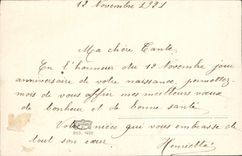 13 Novembre 1921
Ma chère Tante,
En l'honneur du 13 Novembre jour
anniversaire de votre naissance, permettez-
mois de vous offrir mes meilleurs vœux
de bonheur et de bonne santé
Votre nièce qui vous embrasse de
tout son cœur.
Henriette